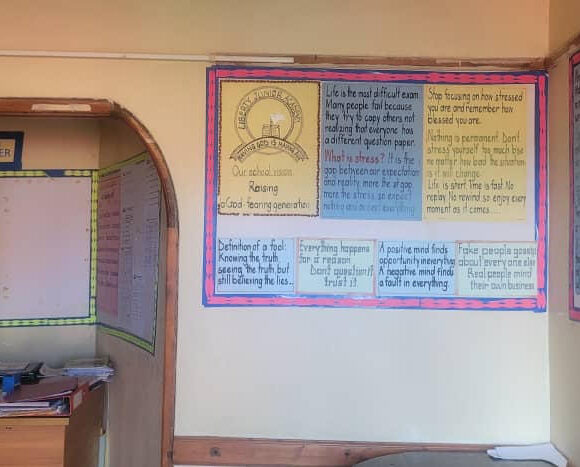 ER
LIBERTY JUNIOR SCHOOL
Our school vision.
Raising
a God-fearing generation
Life is the most difficult exam.
Many people fail because
they try to copy others not
realizing that everyone has
a different question paper.
What is stress? It is the
gap between our expectation
and reality. more the gap,
more the stress. so expect
nothing and accept everything
Stop focusing on how stressed
you are and remember how
blessed you are.
Nothing is permanent. Don't
stress yourself too much bse
no matter how bad the situation
is it will change.
Life is short. Time is fast. No
replay. No rewind so enjoy every
moment as it comes....
Definition of a fool:
Knowing the truth,
seeing the truth, but
still believing the lies...
Everything happens
for a reason
Don't question it,
trust it
A positive mind finds
opportunity in everything
A negative mind finds
a fault in everything.
Fake people gossip
about everyone else
Real people mind
their own business